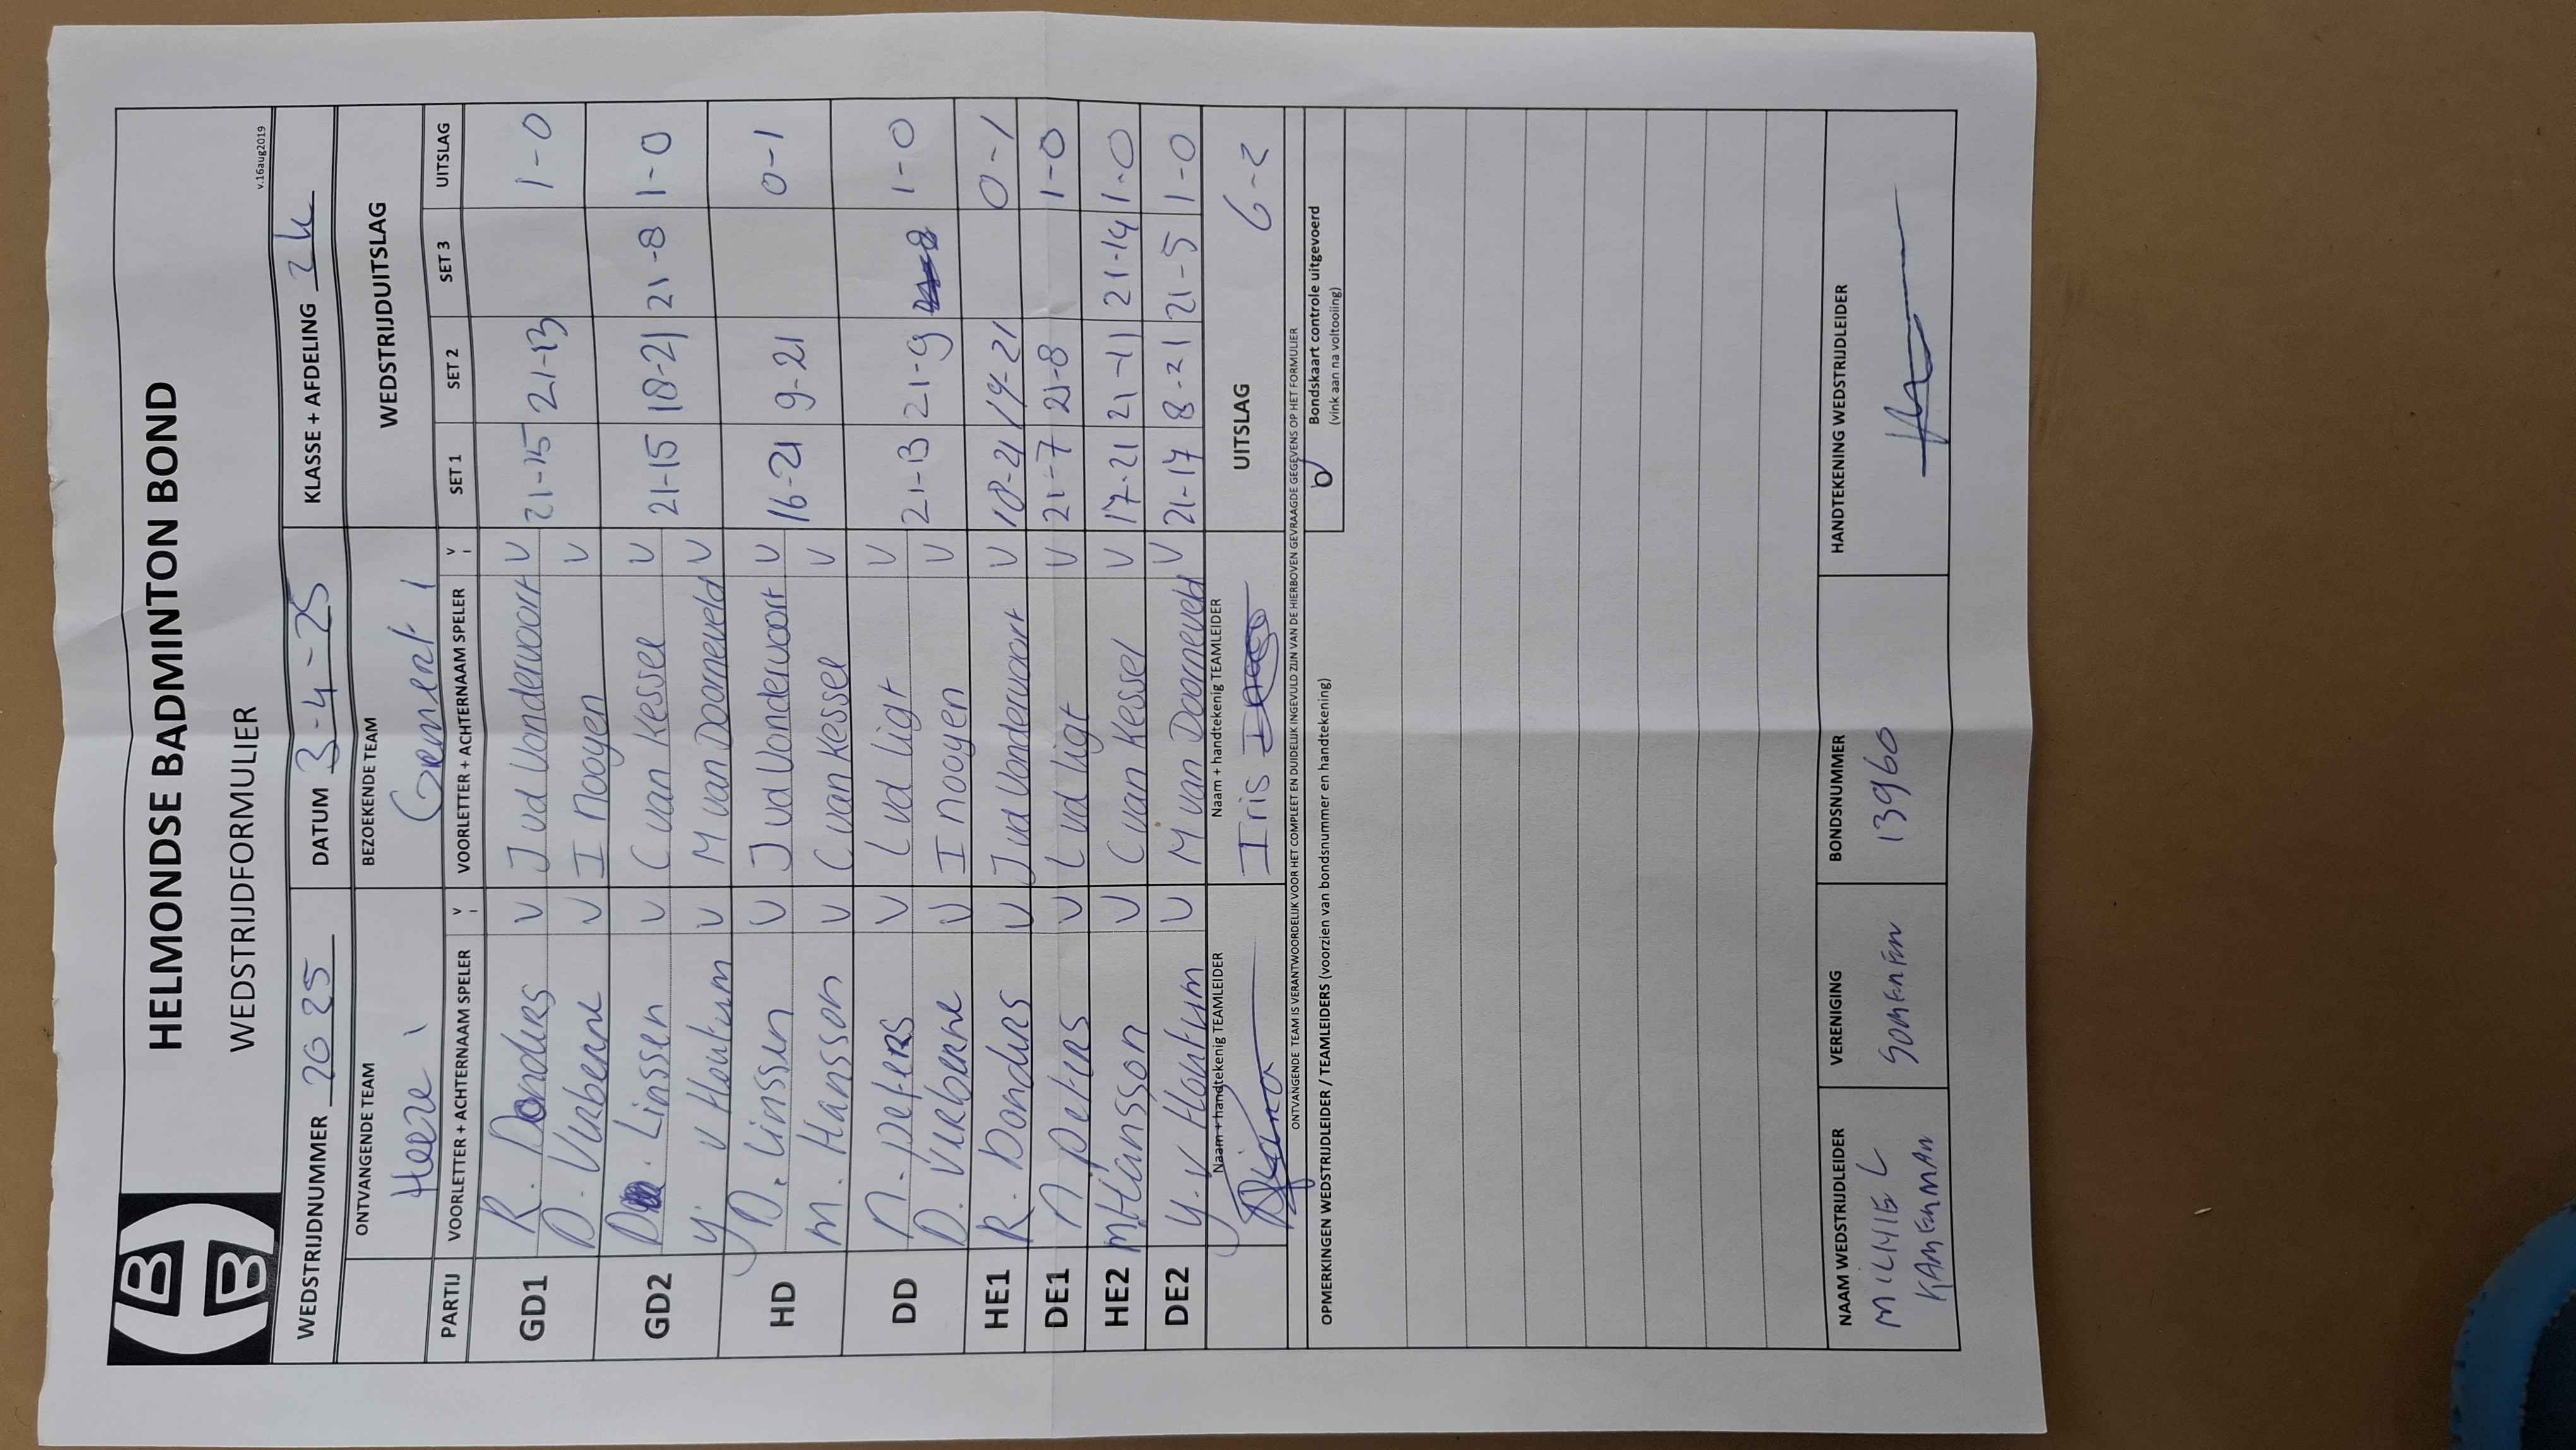 HELMONDSE BADMINTON BOND
WEDSTRIJDFORMULIER
v.16aug2019
WEDSTRIJDNUMMER 2625 DATUM 3-4-25 KLASSE + AFDELING 2K
ONTVANGENDE TEAM BEZOEKENDE TEAM WEDSTRIJDUITSLAG
Heeze 1 Gemert 1
PARTIJ VOORLETTER + ACHTERNAAM SPELER V VOORLETTER + ACHTERNAAM SPELER V SET 1 SET 2 SET 3 UITSLAG
GD1 R. Donders V J vd Vondervoort V 21-15 21-13 1-0
D. Verberne V I Nooyen V
GD2 D. Linssen V C van Kessel V 21-15 18-21 21-8 1-0
Y. v Houtum V M van Doorneveld V
HD D. Linssen V J vd Vondervoort V 16-21 9-21 0-1
M. Hansson V C van Kessel V
DD N. Peters V L vd Ligt V 21-13 21-9 1-0
D. Verberne V I Nooyen V
HE1 R. Donders V J vd Vondervoort V 18-21 19-21 0-1
DE1 N Peters V L vd Ligt V 21-7 21-8 1-0
HE2 M Hansson V C van Kessel V 17-21 21-11 21-14 1-0
DE2 Y. v Houtum V M van Doorneveld V 21-17 8-21 21-5 1-0
Naam + handtekenig TEAMLEIDER Naam + handtekenig TEAMLEIDER UITSLAG 6-2
Iris
ONTVANGENDE TEAM IS VERANTWOORDELIJK VOOR HET COMPLEET EN DUIDELIJK INGEVULD ZIJN VAN DE HIERBOVEN GEVRAAGDE GEGEVENS OP HET FORMULIER
OPMERKINGEN WEDSTRIJDLEIDER / TEAMLEIDERS (voorzien van bondsnummer en handtekening) Bondskaart controle uitgevoerd
(vink aan na voltooiing)
NAAM WEDSTRIJDLEIDER VERENIGING BONDSNUMMER HANDTEKENING WEDSTRIJDLEIDER
SOMEREN 139960